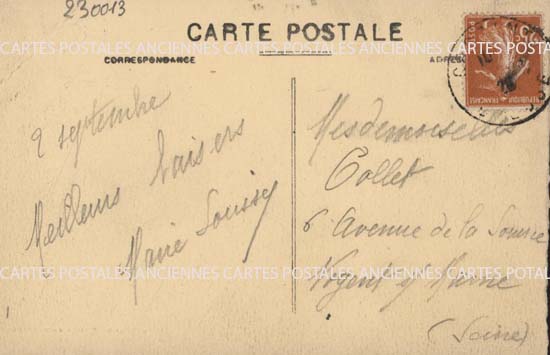 230013
CARTE POSTALE
CARTES POSTALES ANCIENNES CARTES POSTALES ANCIENNES CARTES POSTALES
CORRESPONDANCE
ADRES
REPUBLIQUE FRANÇAISE
2 septembre
Meilleurs baisers
Marie
Mesdemoiselles
Collet
6 Avenue de la Source
Nogent s/ Marne
(Seine)
CARTES POSTALES ANCIENNES CARTES POSTALES ANCIENNES CARTES POSTALES